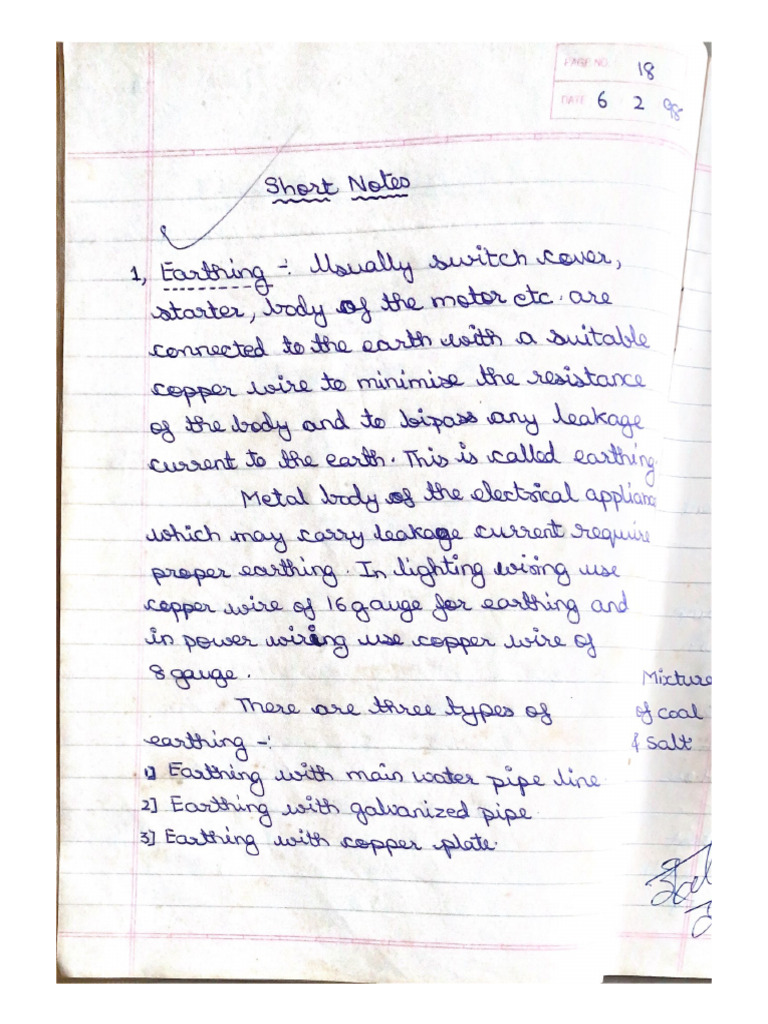 PAGE NO. 18
DATE 6 2 98
Short Notes
1, Earthing -: Usually switch cover,
starter, body of the motor etc. are
connected to the earth with a suitable
copper wire to minimise the resistance
of the body and to bipass any leakage
current to the earth. This is called earthing.
Metal body of the electrical applianc
which may carry leakage current require
proper earthing. In lighting wiring use
copper wire of 16 gauge for earthing and
in power wiring use copper wire of
8 gauge.
There are three types of
earthing -:
1] Earthing with main water pipe line.
2] Earthing with galvanized pipe.
3] Earthing with copper plate.
Mixture
of coal
& Salt